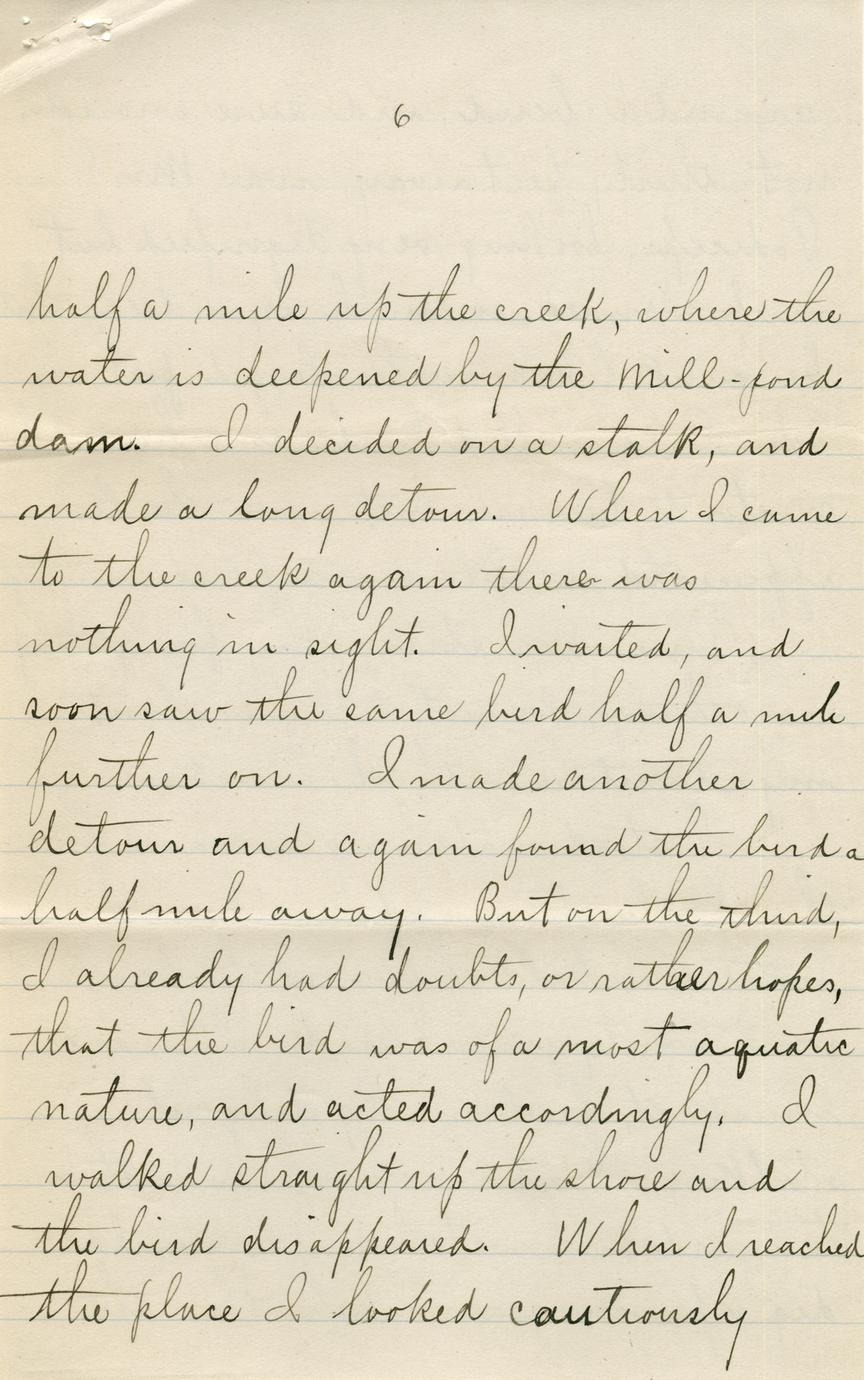 6
half a mile up the creek, where the
water is deepened by the mill-pond
dam. I decided on a stalk, and
made a long detour. When I came
to the creek again there was
nothing in sight. I waited, and
soon saw the same bird half a mile
further on. I made another
detour and again found the bird a
half mile away. But on the third,
I already had doubts, or rather hopes,
that the bird was of a most aquatic
nature, and acted accordingly. I
walked straight up the shore and
the bird disappeared. When I reached
the place I looked cautiously